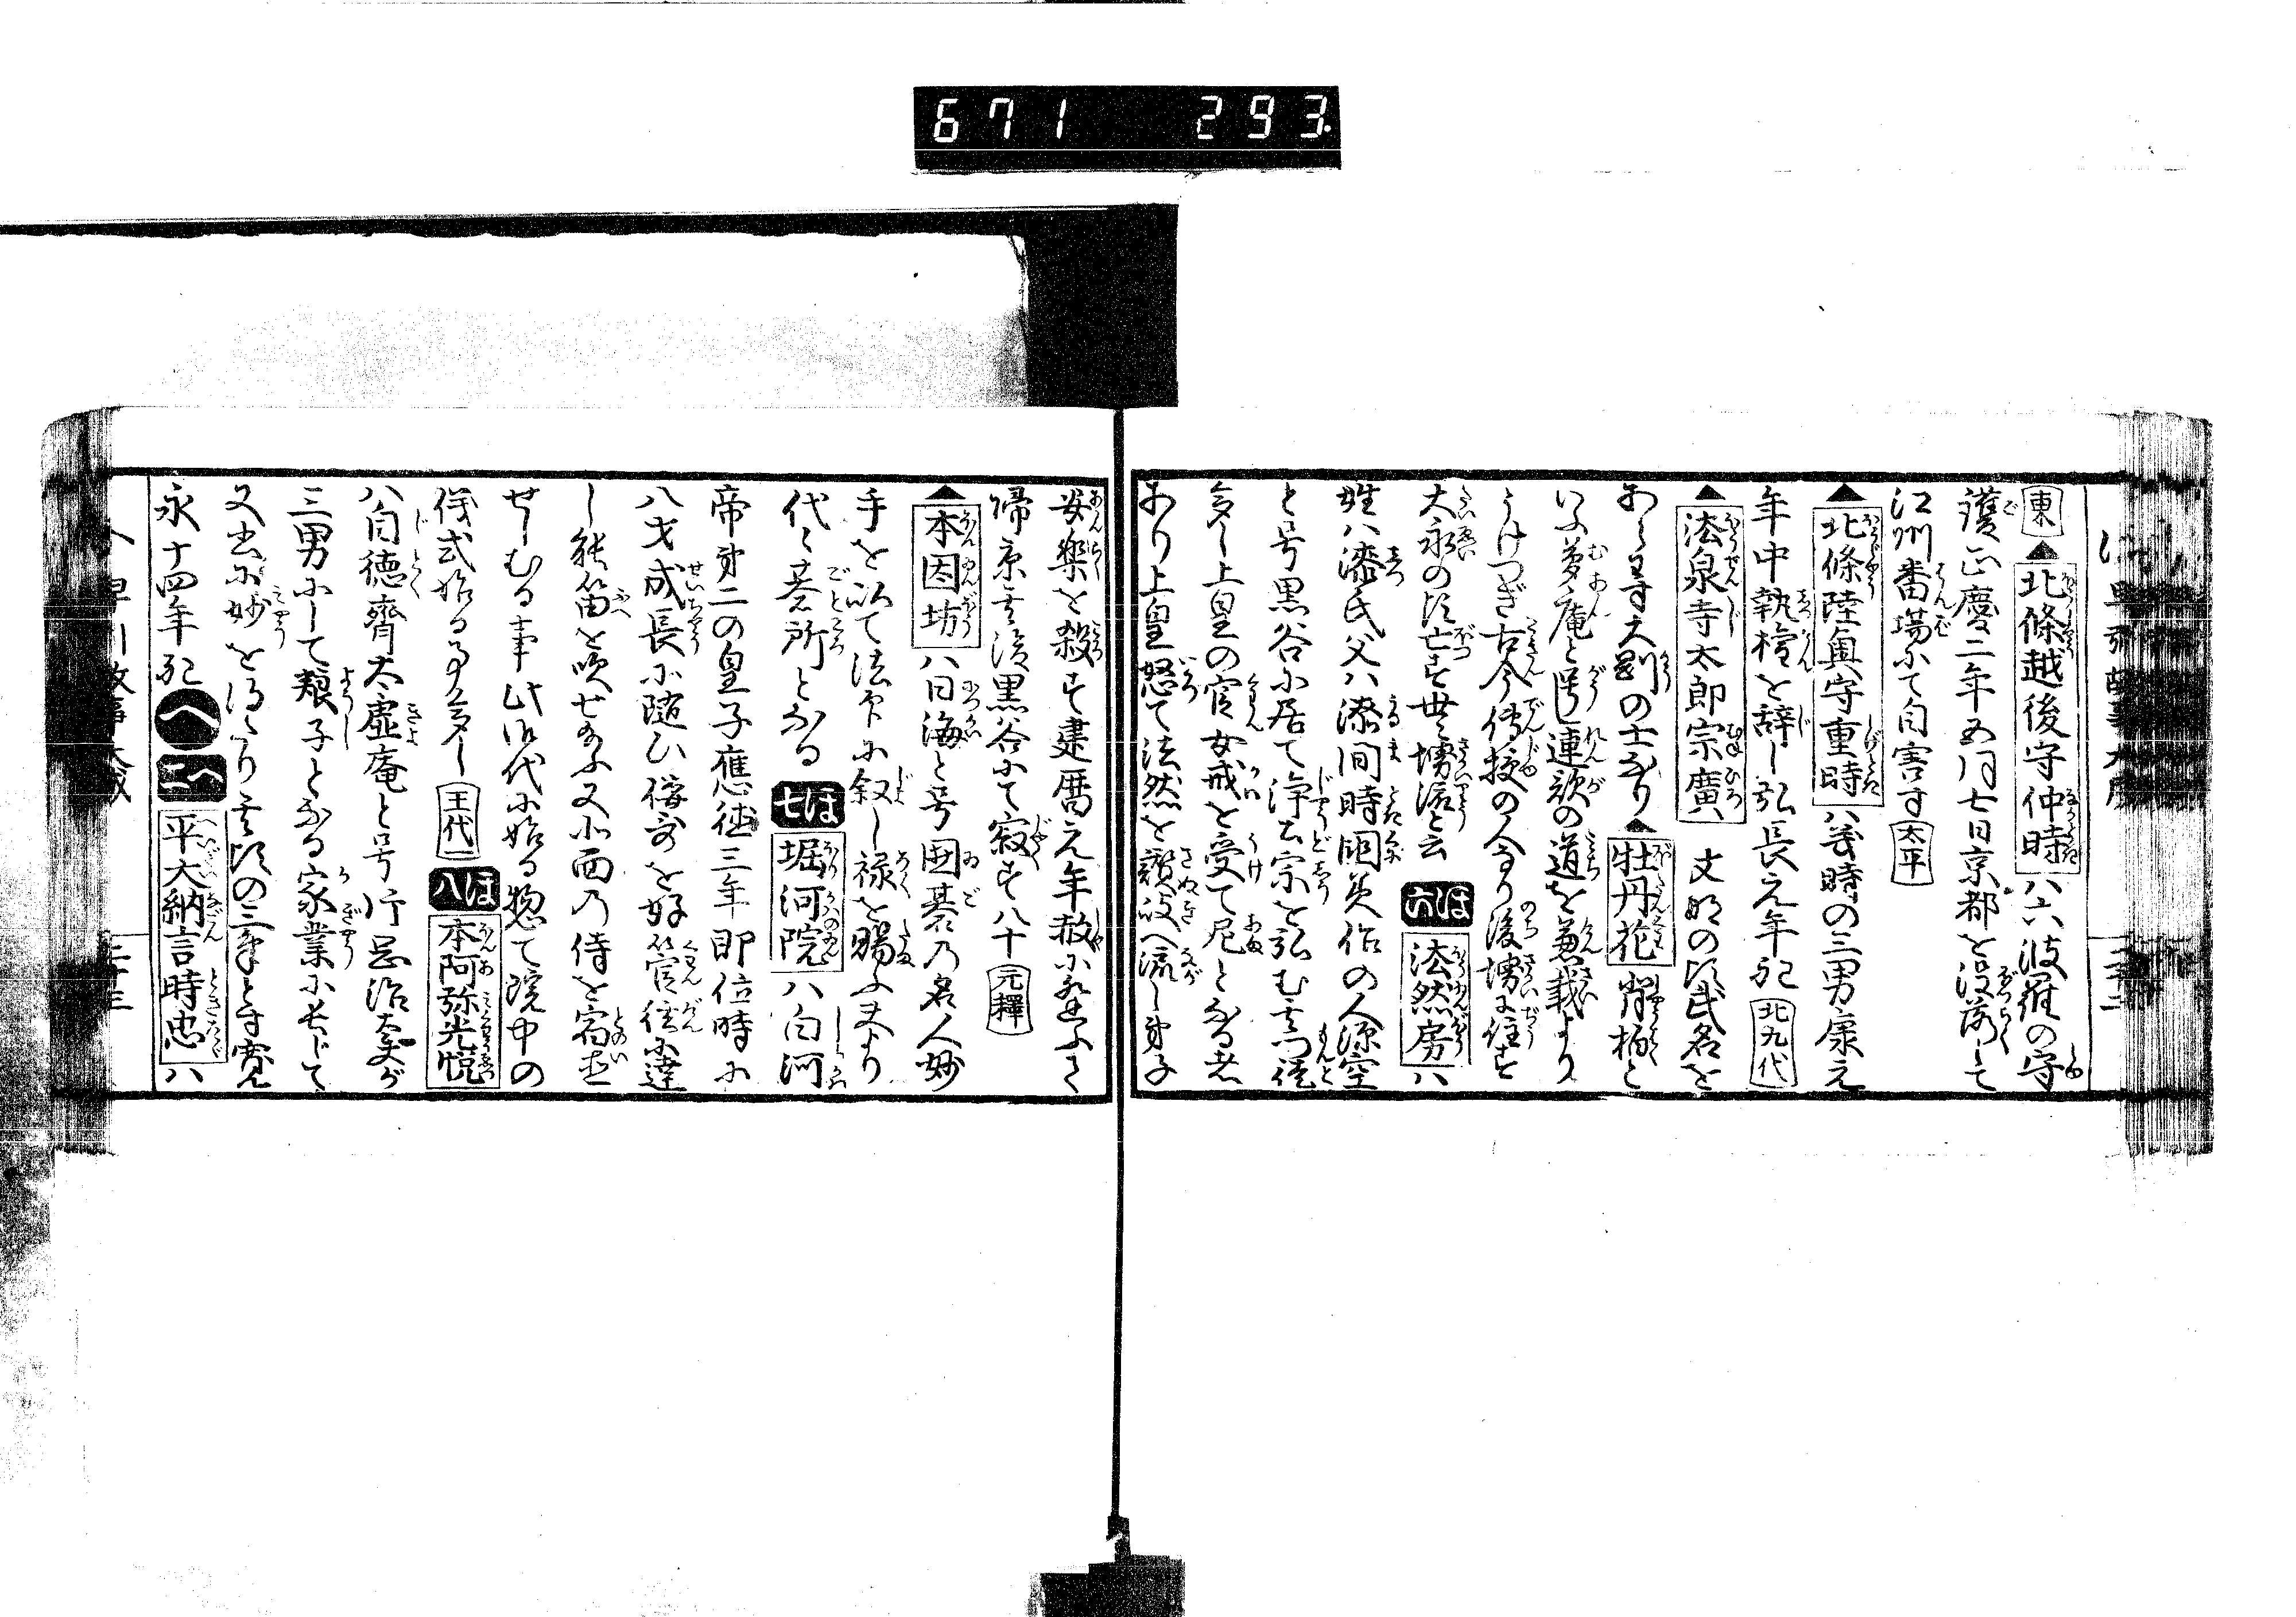 671 293
東▲北條越後守仲時八六波羅の守
護正慶二年五月七日京都を没落して
江州番場にて自害す 太平
▲北條陸奥守重時八義時の三男康元
年中執権を辞し弘長元年死 北九代
▲法泉寺太郎宗廣八 文明の頃武名を
の士なり▲牡丹花肖柏と
いふ夢庵と号し連歌の道を兼載より
うけつぎ古今傳授の人なり後堺に住す
大永の頃亡す世堺流と云 ほ六 法然房八
姓八漆氏父八漆間時国美作の人源空
と号黒谷に居て浄土宗を弘む
多し上皇の官女戒を受て尼となる者
あり上皇怒て法然を讃岐へ流し弟子
安楽を殺す建暦元年赦にあふて
帰京其後黒谷にて寂す八十 元釋
▲本因坊八日海と号囲碁の名人妙
手を以て法印に叙し禄を賜ふ夫より
代々碁所となる ほ七 堀河院八白河
帝第二の皇子應徳三年即位時に
八才成長に随ひ 好管絃に達
し能笛を吹せ給ふ又小面の侍を宿直
せしむる事此御代に始る惣て院中の
儀式始る事多し 王代 ほ八 本阿弥光悦
八自徳齊大虚庵と号
三男にして養子となる家業に長じて
又書に妙を得たり其頃の三筆とす寛
永十四年死 へ へ二 平大納言時忠八